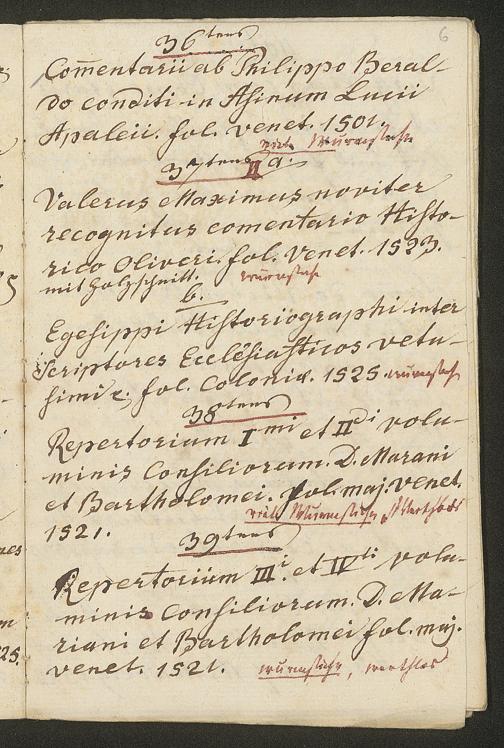 6
36tens
Com̄entarii ab Philippo Beral-
do conditi in Asinum Lucii
Apaleii. fol. venet. 1501.
viele Wurmstiche
37tens II a.
Valerus Maximus noviter
recognitus comentario Histo-
rico Oliveri. fol. Venet. 1523.
mit Holzschnitt. wurmstich
b.
Egesippi Historiographi inter
Scriptores Ecclesiasticos vetu-
simi e; fol. Coloniæ. 1525. wurmstich
38tens
Repertorium Imi et IIdi volu-
minis Consiliorum. D. Marani
et Bartholomei. fol. maj. Venet.
1521. viele Wurmstiche, Werthlos
39tens
Repertorium IIIi. et IVti volu-
minis Consiliorum. D. Ma-
riani et Bartholomei fol. maj.
venet. 1521. wurmstiche, werthlos